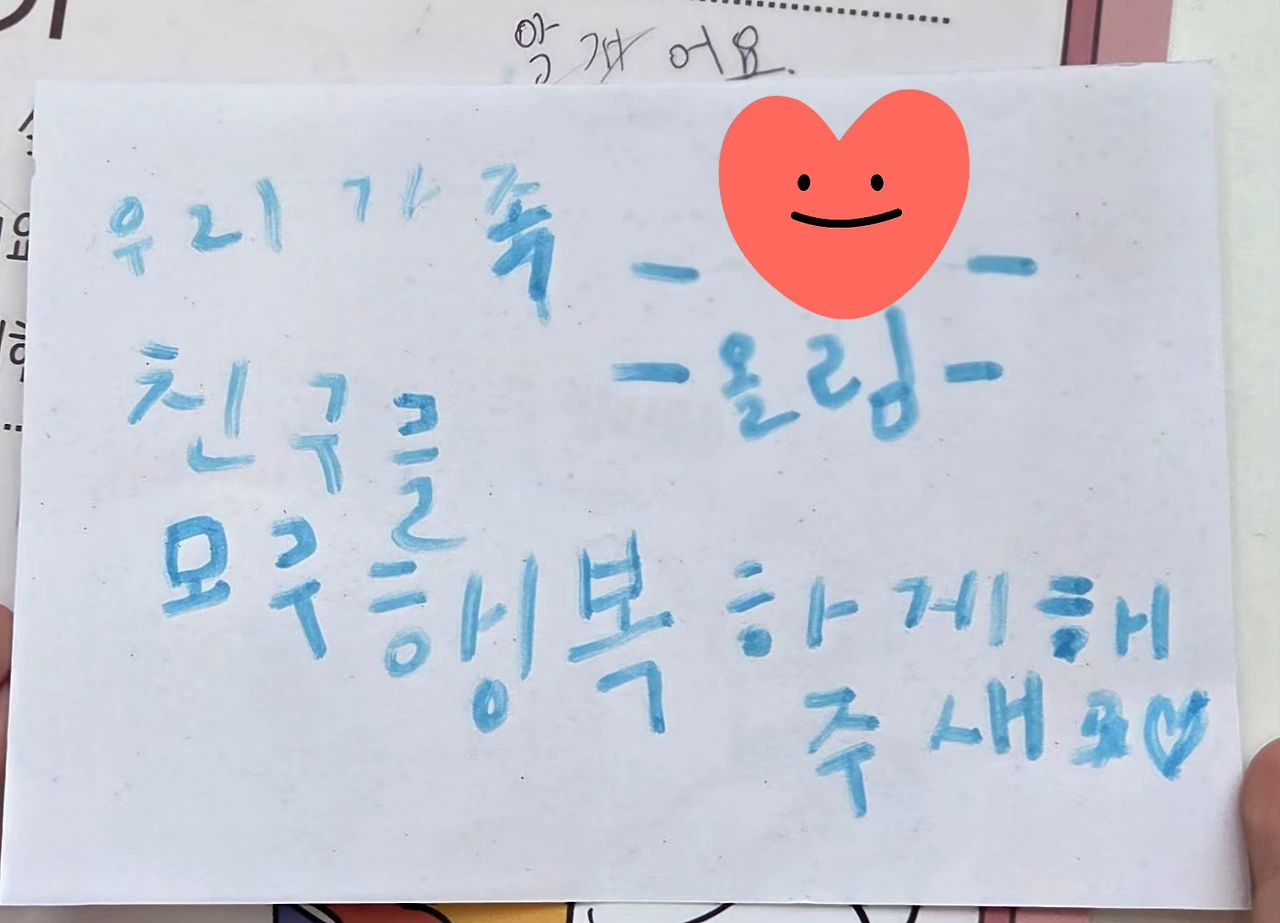 어요.
우리가족
- -
-올림-
친구를
모루행복하게해
주새요♡